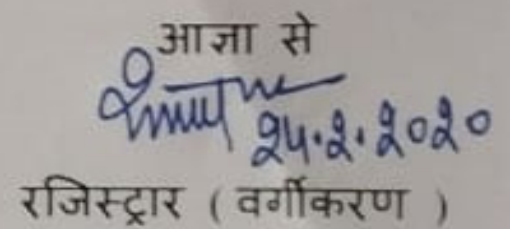 आज्ञा से
२५.२.२०२०
रजिस्ट्रार ( वर्गीकरण )